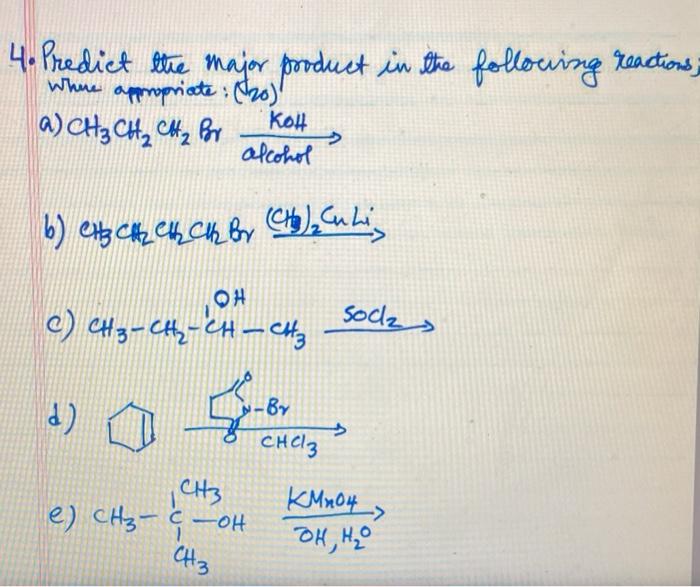 4. Predict the major product in the following reactions,
where appropriate: (20)
a) CH3 CH2 CH2 Br KOH
alcohol
b) CH3 CH2 CH2 CH2 Br (CH3)2 CuLi
OH
c) CH3-CH2-CH-CH3 SOCl2
O
d) N-Br
O CHCl3
CH3
e) CH3-C-OH KMnO4
CH3 OH, H2O